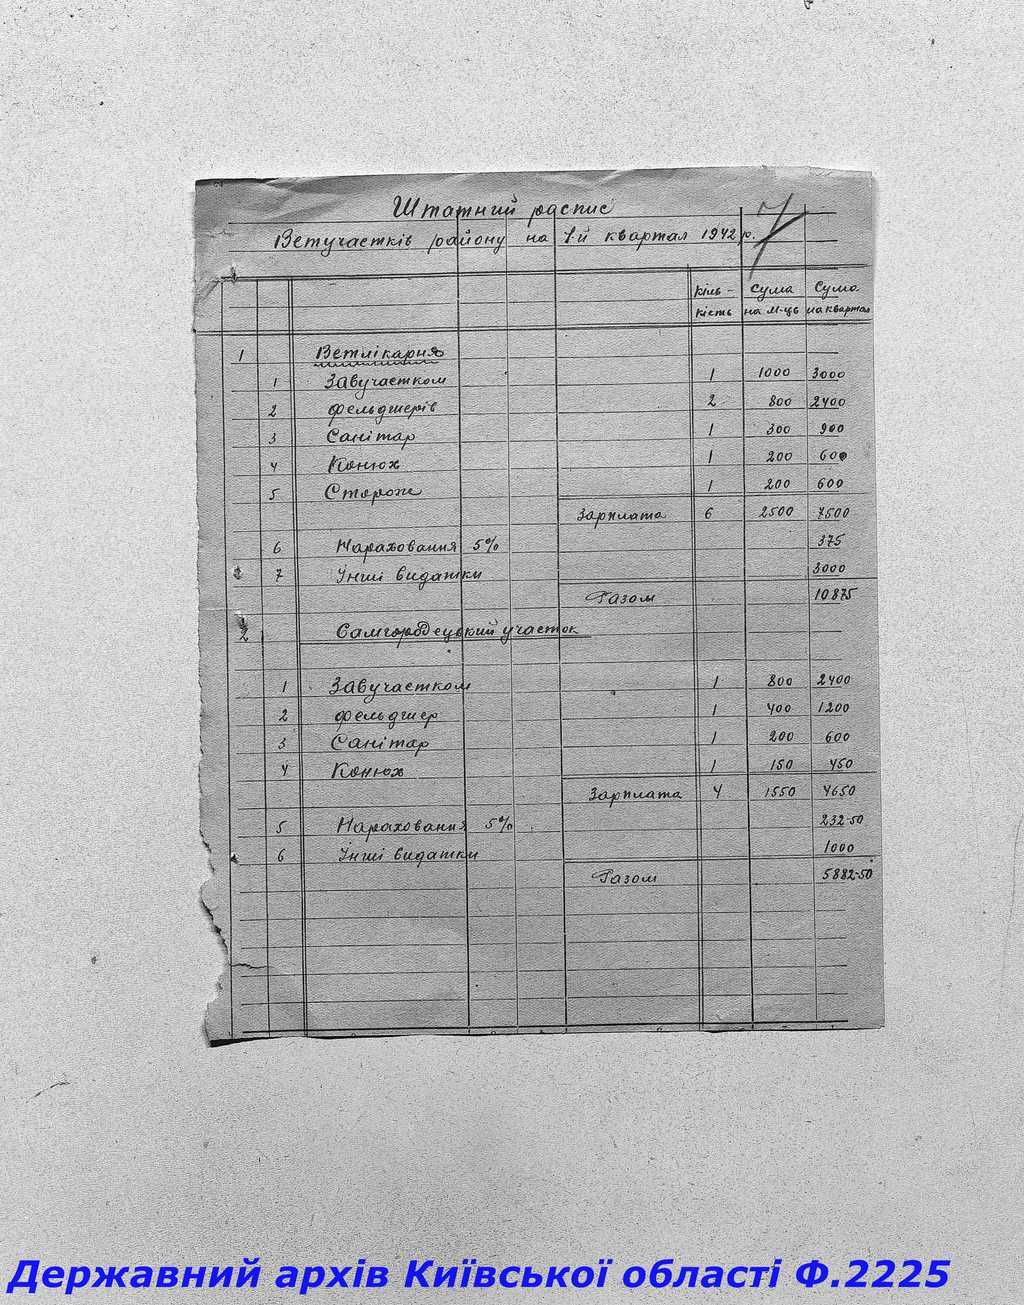 Штатний распис
7
Ветучастків району на 1-й квартал 1942 р.
Кіль- Сума Сума
кість на м-ць на квартал
1 Ветлікарня
1 Завучастком 1 1000 3000
2 фельдшерів 2 800 2400
3 Санітар 1 300 900
4 Конюх 1 200 600
5 Сторож 1 200 600
Зарплата 6 2500 7500
6 Нараховання 5% 375
7 Інші видатки 3000
Разом 10875
2 Самгородецький участок
1 Завучастком 1 800 2400
2 фельдшер 1 400 1200
3 Санітар 1 200 600
4 Конюх 1 150 450
Зарплата 4 1550 4650
5 Нараховання 5% 232-50
6 Інші видатки 1000
Разом 5882-50
Державний архів Київської області Ф.2225